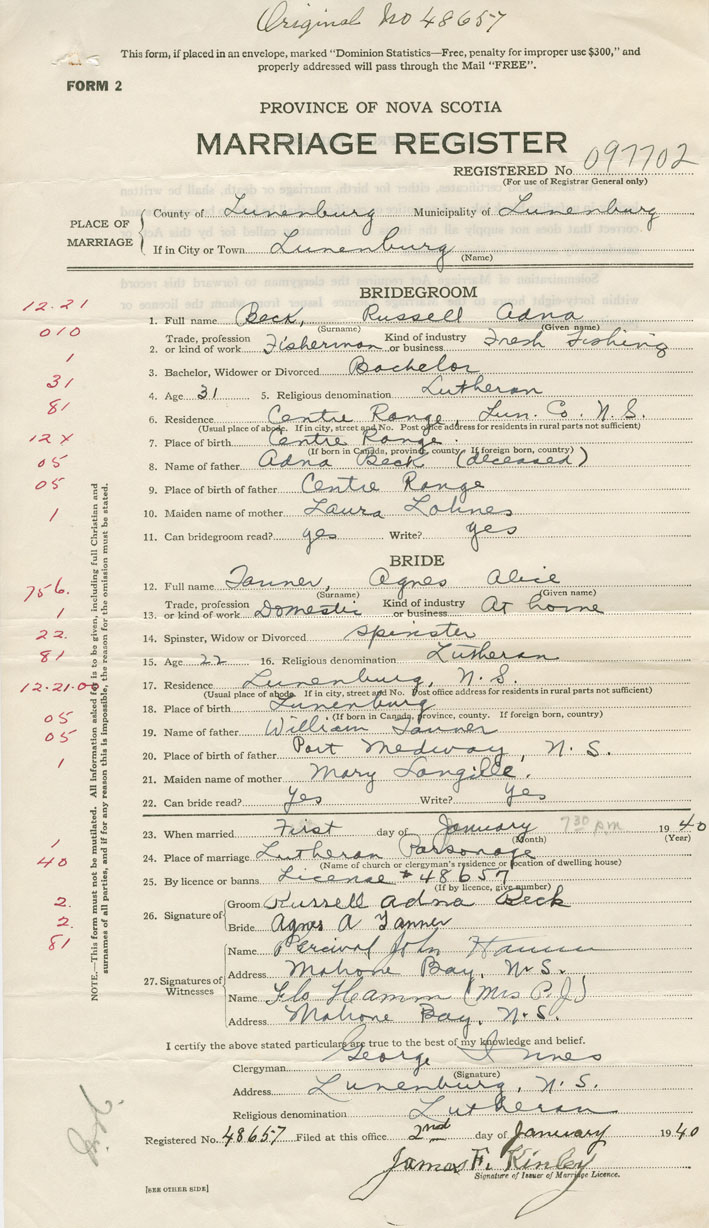 Original No 48657
This form, if placed in an envelope, marked "Dominion Statistics—Free, penalty for improper use $300," and
properly addressed will pass through the Mail "FREE".
FORM 2
PROVINCE OF NOVA SCOTIA
MARRIAGE REGISTER
REGISTERED No 097702
(For use of Registrar General only)
PLACE OF MARRIAGE
County of Lunenburg Municipality of Lunenburg
If in City or Town Lunenburg
(Name)
BRIDEGROOM
12.21
1. Full name Beck, Russell Adna
(Surname) (Given name)
010
2. Trade, profession or kind of work Fisherman Kind of industry or business Fresh Fishing
1
3. Bachelor, Widower or Divorced Bachelor
31
4. Age 31 5. Religious denomination Lutheran
81
6. Residence Centre Range, Lun. Co. N.S.
(Usual place of abode. If in city, street and No. Post office address for residents in rural parts not sufficient)
12 X
7. Place of birth Centre Range.
(If born in Canada, province, county. If foreign born, country)
05
8. Name of father Adna Beck (deceased)
05
9. Place of birth of father Centre Range
1
10. Maiden name of mother Laura Lohnes
11. Can bridegroom read? yes Write? yes
BRIDE
756.
12. Full name Tanner, Agnes Alice
(Surname) (Given name)
1
13. Trade, profession or kind of work Domestic Kind of industry or business At home
22.
14. Spinster, Widow or Divorced Spinster
81
15. Age 22 16. Religious denomination Lutheran
12.21.0
17. Residence Lunenburg, N.S.
(Usual place of abode. If in city, street and No. Post office address for residents in rural parts not sufficient)
05
18. Place of birth Lunenburg
(If born in Canada, province, county. If foreign born, country)
05
19. Name of father William Tanner
1
20. Place of birth of father Port Medway, N.S.
21. Maiden name of mother Mary Langille.
22. Can bride read? Yes Write? Yes
23. When married First day of January 7 30 P.M. 1940
(Month) (Year)
1
24. Place of marriage Lutheran Parsonage
(Name of church or clergyman's residence or location of dwelling house)
40
25. By licence or banns License # 48657
(If by licence, give number)
2.
26. Signature of
Groom Russell Adna Beck
2.
Bride Agnes A Tanner
81
27. Signatures of Witnesses
Name Percival John Hamm
Address Mahone Bay, N.S.
Name Flo Hamm (Mrs P.J)
Address Mahone Bay, N.S.
I certify the above stated particulars are true to the best of my knowledge and belief.
Clergyman George Innes
(Signature)
Address Lunenburg, N.S.
Religious denomination Lutheran
Registered No. 48657 Filed at this office 2nd day of January 1940
James F. Kinley
Signature of Issuer of Marriage Licence.
[SEE OTHER SIDE]
NOTE.—This form must not be mutilated. All information asked for is to be given, including full Christian and
surnames of all parties, and if for any reason this is impossible, the reason for the omission must be stated.